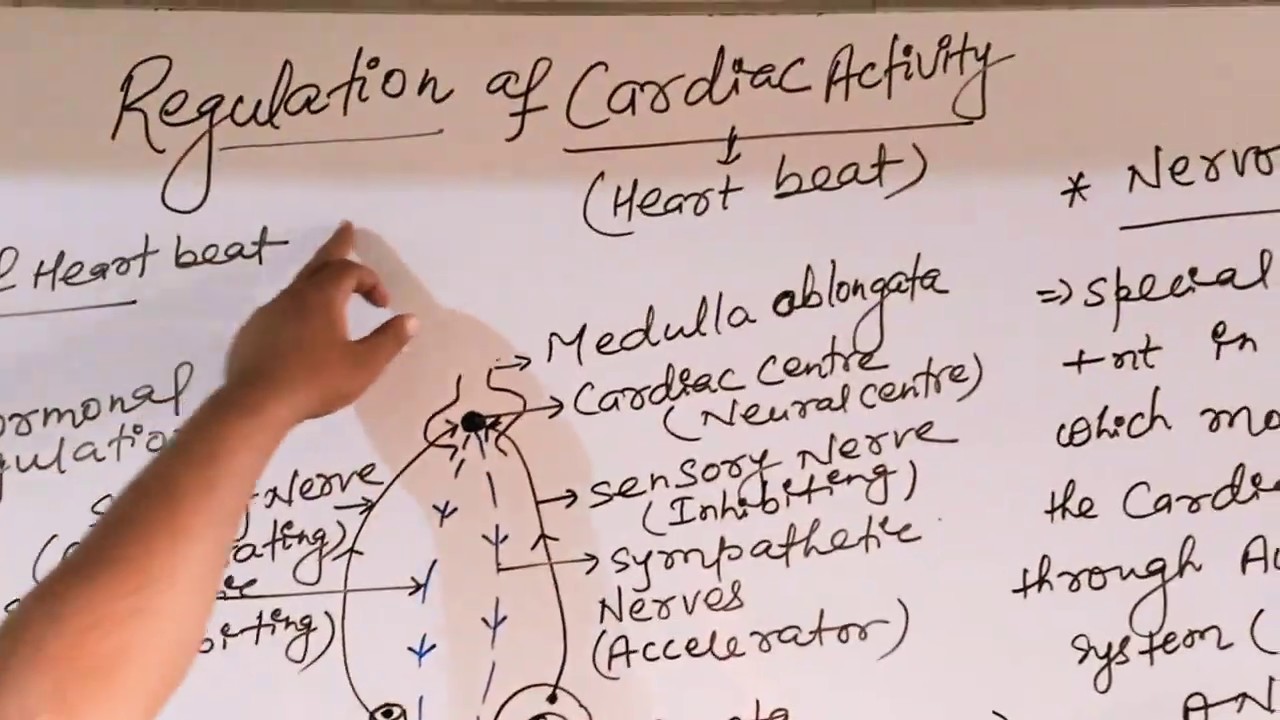 Regulation of Cardiac Activity
(Heart beat)
Heart beat
Nerve
Medulla oblongata
Cardiac centre
(Neural centre)
Sensory Nerve
(Inhibiting)
sympathetic
Nerves
(Accelerator)
* Nervo
=> special
+nt in
which mo
the Cardi
through A
system (
AN